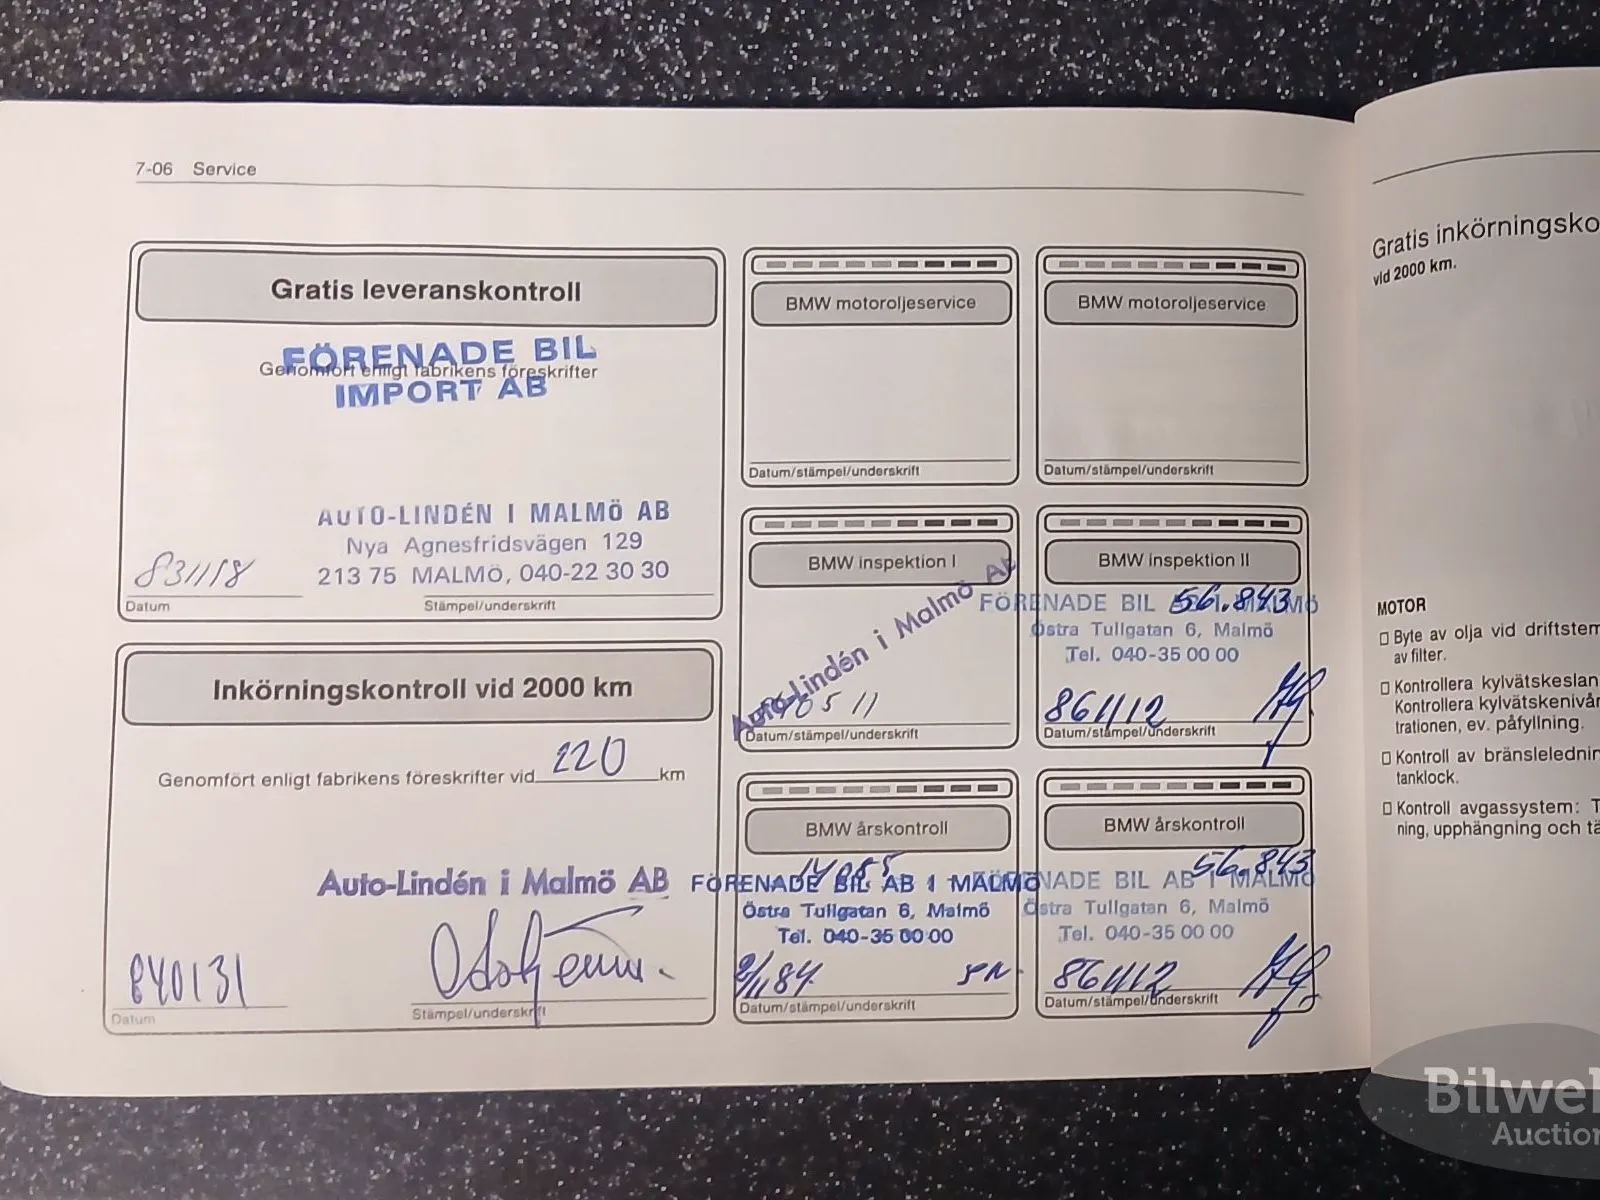 7-06 Service
Gratis leveranskontroll
FÖRENADE BIL
Genomfört enligt fabrikens föreskrifter
IMPORT AB
AUTO-LINDÉN I MALMÖ AB
Nya Agnesfridsvägen 129
213 75 MALMÖ, 040-22 30 30
831118
Datum
Stämpel/underskrift
Inkörningskontroll vid 2000 km
Genomfört enligt fabrikens föreskrifter vid 220 km
Auto-Lindén i Malmö AB
840131
Datum
Stämpel/underskrift
BMW motoroljeservice
Datum/stämpel/underskrift
BMW motoroljeservice
Datum/stämpel/underskrift
BMW inspektion I
Auto-Lindén i Malmö AB
Datum/stämpel/underskrift
BMW inspektion II
56.843
FÖRENADE BIL AB I MALMÖ
Östra Tullgatan 6, Malmö
Tel. 040-35 00 00
861112
Datum/stämpel/underskrift
BMW årskontroll
FÖRENADE BIL AB I MALMÖ
Östra Tullgatan 6, Malmö
Tel. 040-35 00 00
Datum/stämpel/underskrift
BMW årskontroll
56.843
FÖRENADE BIL AB I MALMÖ
Östra Tullgatan 6, Malmö
Tel. 040-35 00 00
861112
Datum/stämpel/underskrift
Gratis inkörningsko
vid 2000 km.
MOTOR
Byte av olja vid driftstem
av filter.
Kontrollera kylvätskeslan
Kontrollera kylvätskenivår
trationen, ev. påfyllning.
Kontroll av bränsleledni
tanklock.
Kontroll avgassystem: T
ning, upphängning och tä
Bilwe
Auction